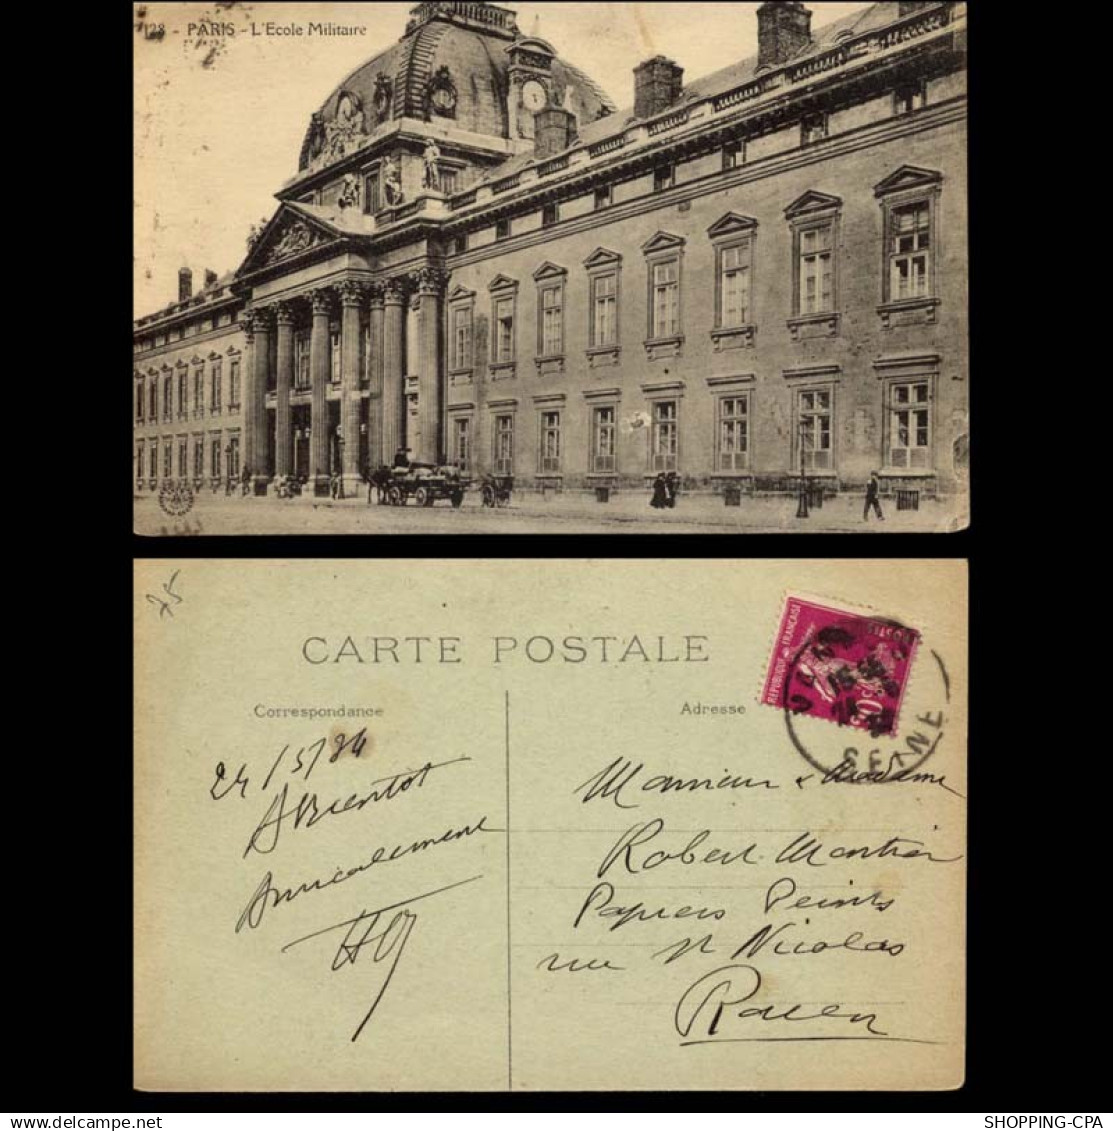 128 - PARIS - L'Ecole Militaire
75
CARTE POSTALE
Correspondance
Adresse
REPUBLIQUE FRANÇAISE
POSTES
SEINE
24/5/34
A Bientot
Amicalement
Monsieur & Madame
Robert Mortier
Papiers Peints
rue St Nicolas
Rouen
SHOPPING-CPA